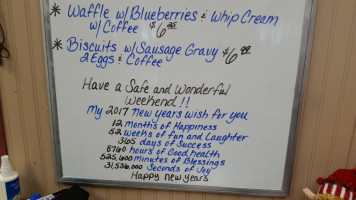 * Waffle w/ Blueberries & Whip Cream
w/ Coffee $6.25
* Biscuits w/ Sausage Gravy $6.00
2 Eggs & Coffee
Have a Safe and Wonderful
Weekend!!
My 2017 New Years wish for you
12 months of Happiness
52 weeks of fun and Laughter
365 days of Success
8760 hours of Good health
525,600 minutes of Blessings
31,536,000 Seconds of Joy
Happy New Years